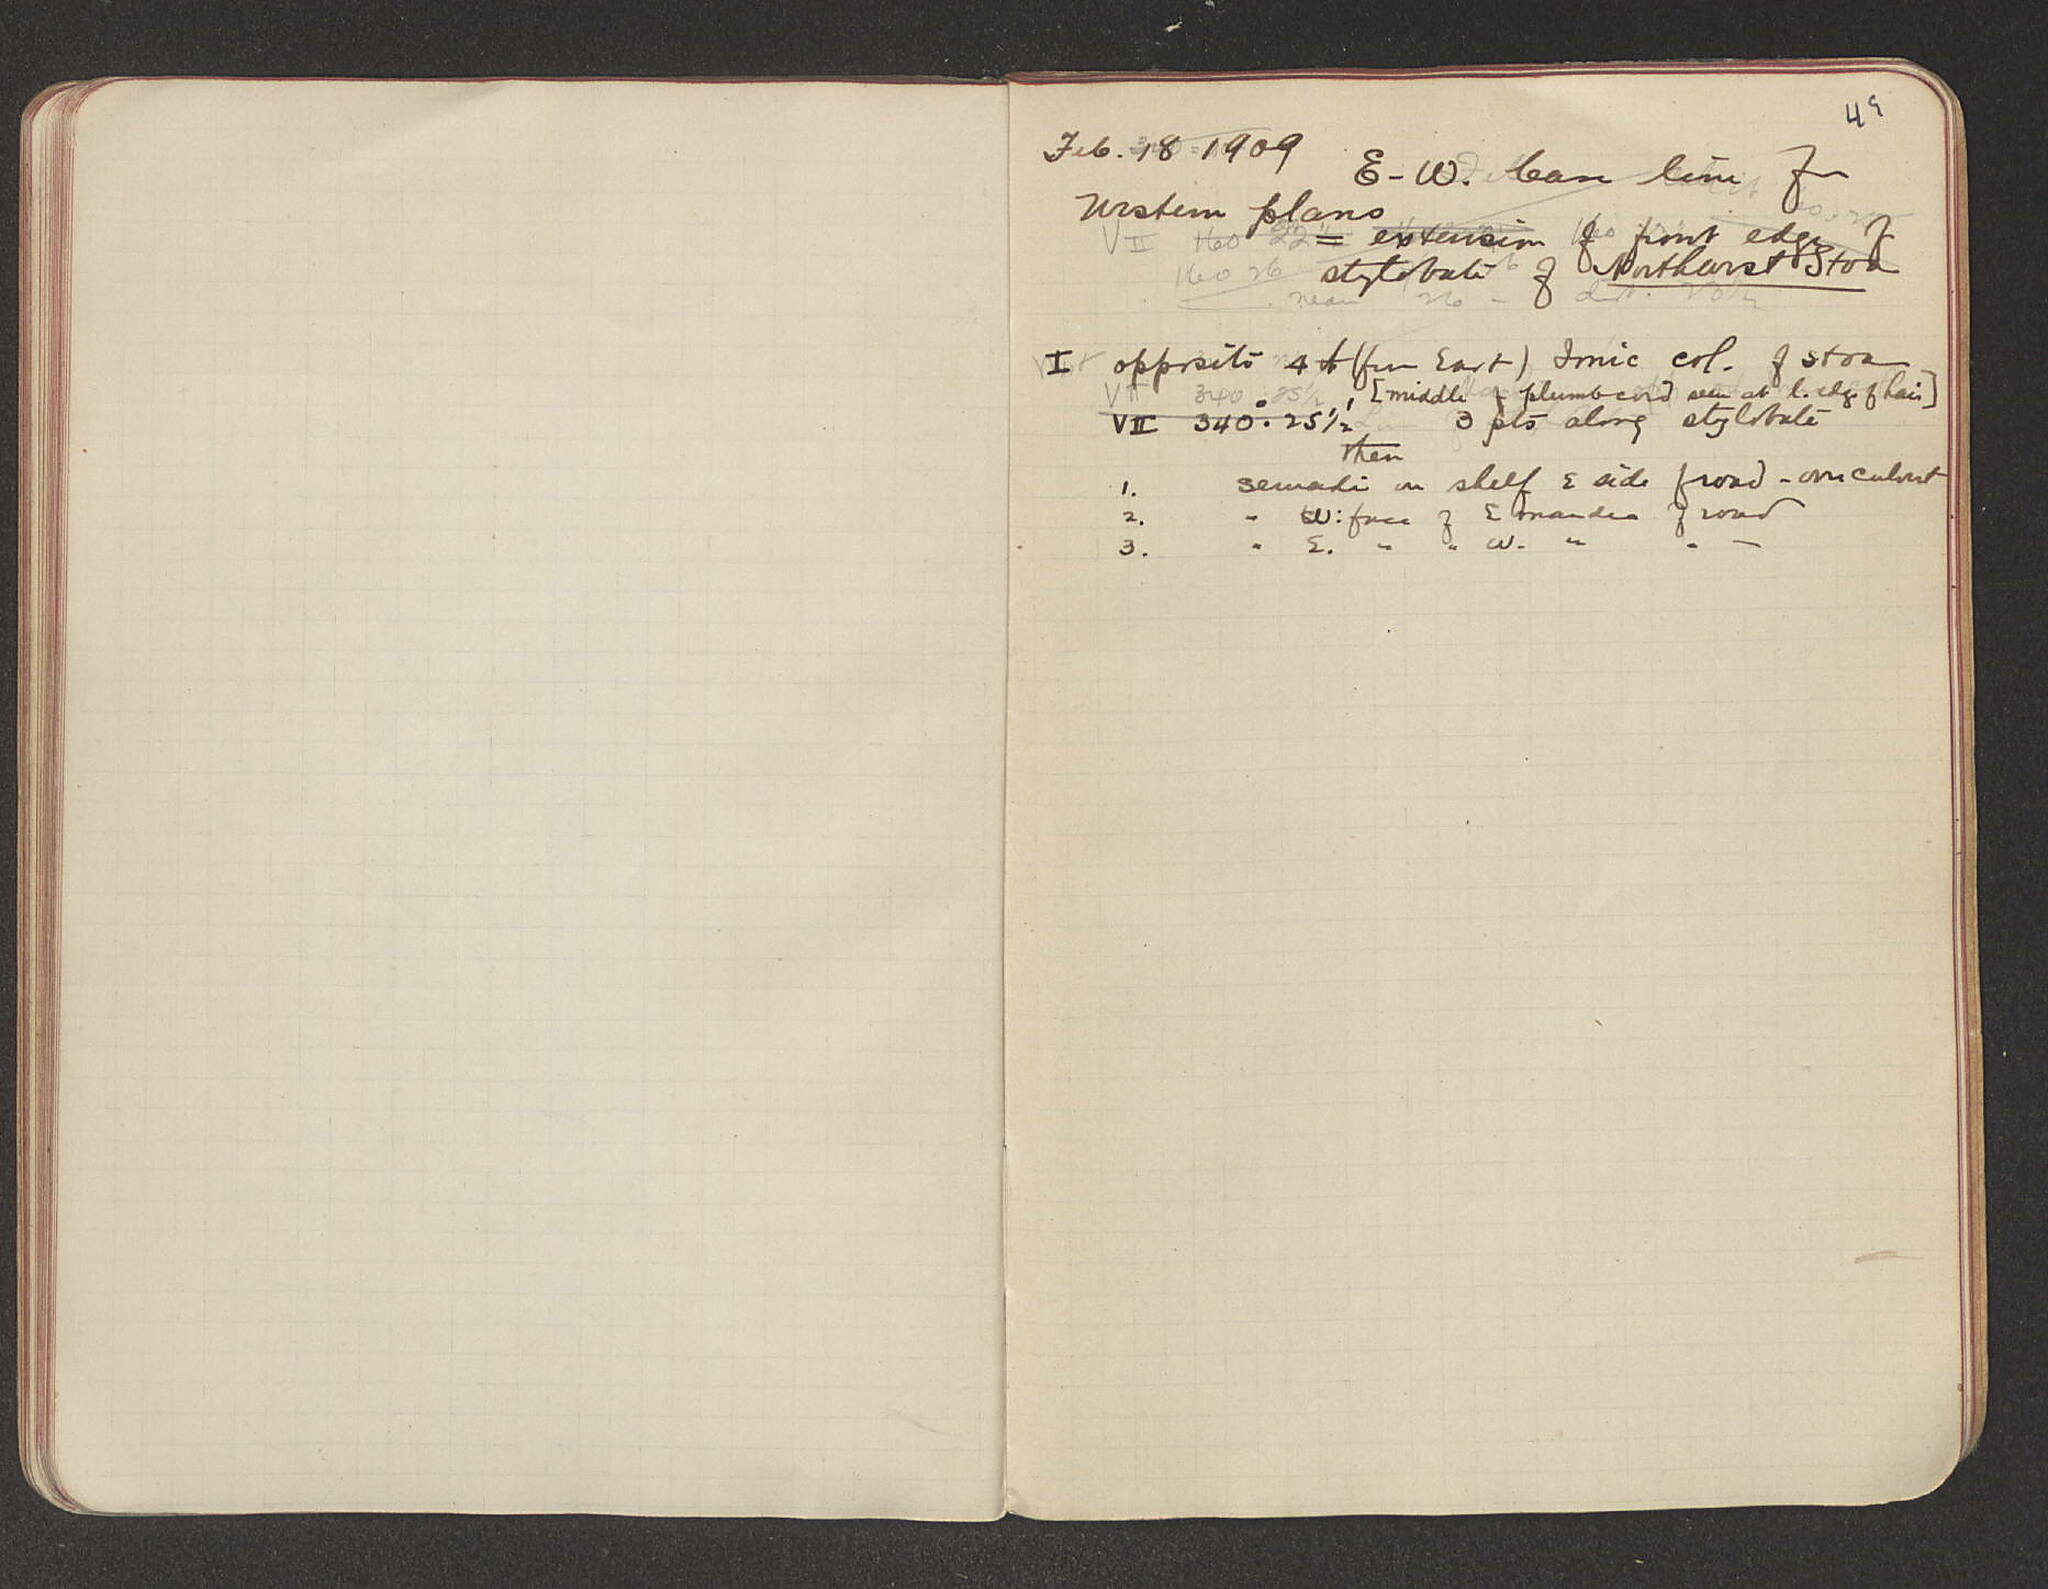 49
Feb. 18 1909
E-W. base line for
Western plans
= extension of front edge of
stylobate of Northwest Stoa
I opposite 4th (from East) Ionic col. of stoa
[middle of plumb-cord seen at l. edge of hair]
VII 340° 25½' 3 pts along stylobate
then
1. semadi on shelf E side of road - over culvert
2. " W. face of E mandra of road
3. " E. " " W. " " "
VII 160 22½
160 26
mean 26
VII 340 25½